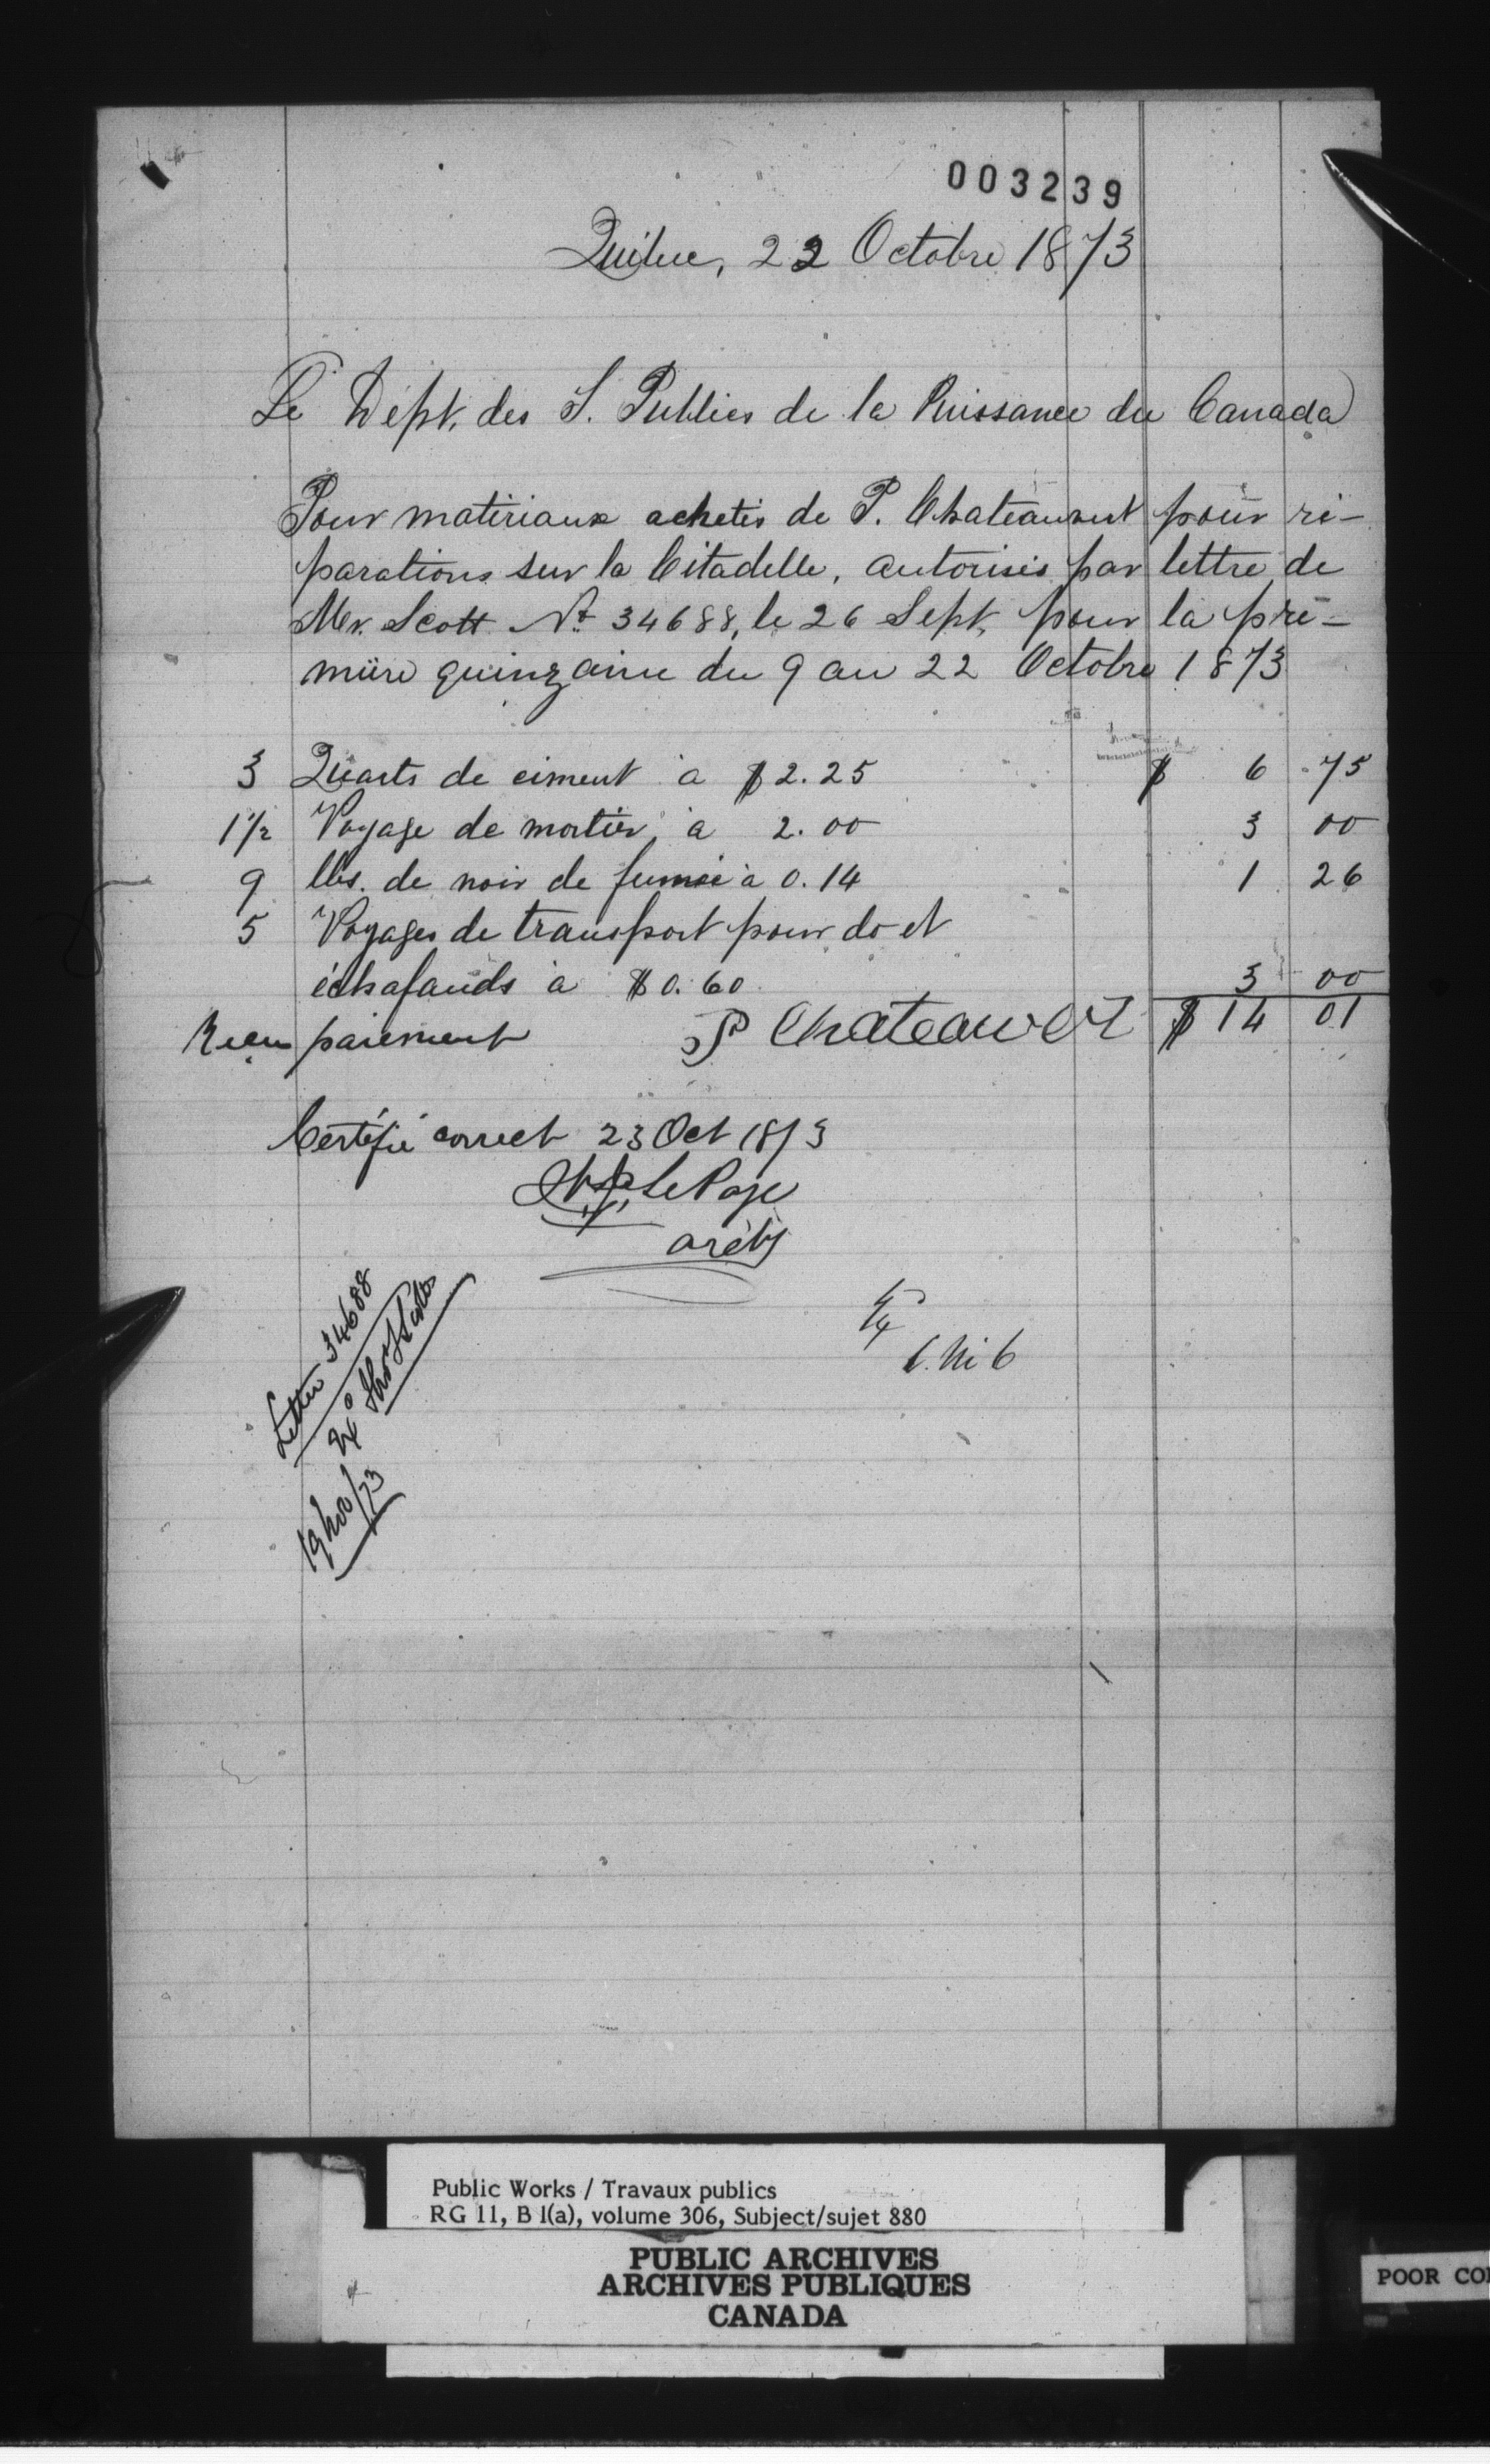 003239
Québec, 22 Octobre 1873
Le Dépt. des T. Publics de la Puissance du Canada
Pour matériaux achetés de P. Chateauvert pour ré-
parations sur la Citadelle, autorisés par lettre de
Mr. Scott No. 34688, le 26 Sept. pour la pre-
mière quinzaine du 9 au 22 Octobre 1873
3 Quarts de ciment à $2.25 $ 6 75
1 1/2 Voyage de mortier à 2.00 3 00
9 lbs. de noir de fumée à 0.14 1 26
5 Voyages de transport pour do et
échafauds à $0.60 3 00
Reçu paiement P Chateauvert $14 01
Certifié correct 23 Oct 1873
LePage
Letter 34688
19 Nov/73
Public Works / Travaux publics
RG 11, B 1(a), volume 306, Subject/sujet 880
PUBLIC ARCHIVES
ARCHIVES PUBLIQUES
CANADA
POOR